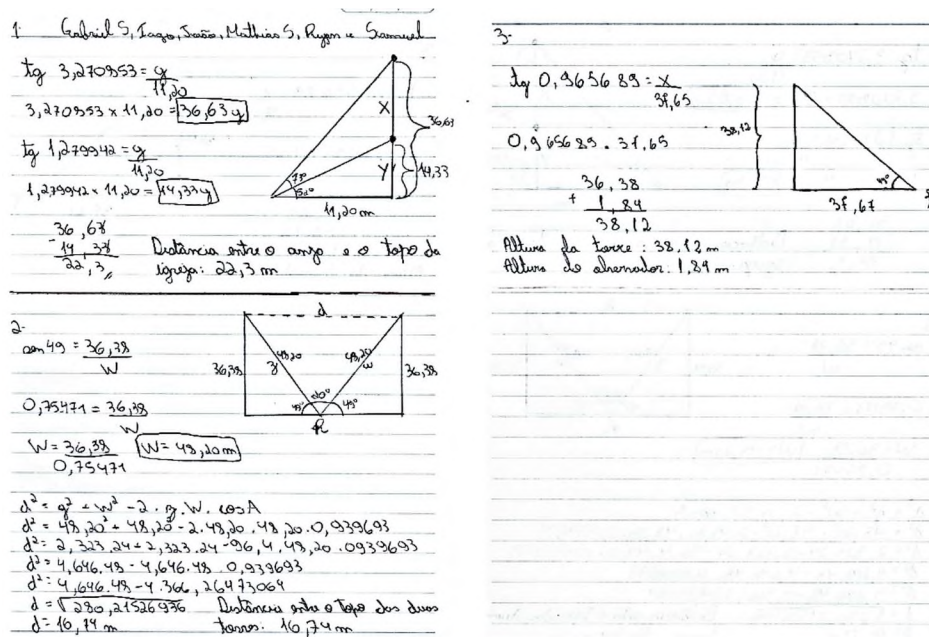 1. Gabriel S, Iago, João, Mathias S, Ryan e Samuel
tg 3,270953 = y
11,20
3,270953 x 11,20 = 36,63y
tg 1,279942 = y
11,20
1,279942 x 11,20 = 14,33y
X
Y
36,63
14,33
73°
52°
11,20 m
- 14,33
22,3
Distância entre o anjo e o topo da
igreja: 22,3 m
2-
sen 49 = 36,38
W
0,75471 = 36,38
W
W = 36,38
0,75471
W = 48,20m
d
36,38
48,20
48,20
w
36,38
49°
R
d² = y² + w² - 2. y. W. cosA
d² = 48,20² + 48,20² - 2.48,20.48,20.0,939693
d² = 2,323.24 + 2,323.24 - 96,4.48,20.0939693
d² = 4,646.48 - 4,646.48.0,939693
d² = 4,646.48 - 4.366,26473064
d = √280,21526936
d = 16,74 m
Distância entre o topo das duas
torres: 16,74 m
3-
tg 0,965689 = x
37,65
0,965689 . 37,65
36,38
+ 1,84
38,12
38,12
37,67
Altura da torre: 38.12 m
Altura do observador: 1,84 m